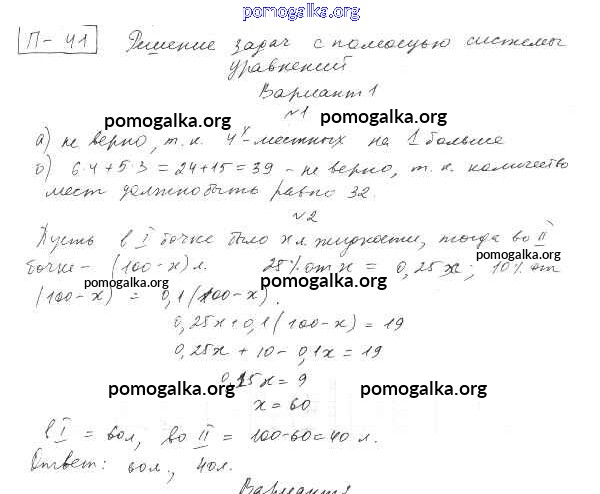 pomogalka.org
П-41 Решение задач с помощью системы
уравнений
Вариант 1
pomogalka.org №1 pomogalka.org
а) не верно, т.к. 4х-местных на 1 больше
б) 6·4+5·3=24+15=39 - не верно, т.к. количество
мест должно быть равно 32.
№2
Пусть в I бочке было х л жидкости, тогда во II
бочке - (100-х) л. 25% от х = 0,25х; 10% от
(100-х) = 0,1(100-х).
pomogalka.org pomogalka.org
0,25х+0,1(100-х)=19
0,25х+10-0,1х=19
0,15х=9
pomogalka.org pomogalka.org
х=60
в I = 60л, во II = 100-60=40 л.
Ответ: 60л., 40л.
pomogalka.org pomogalka.org